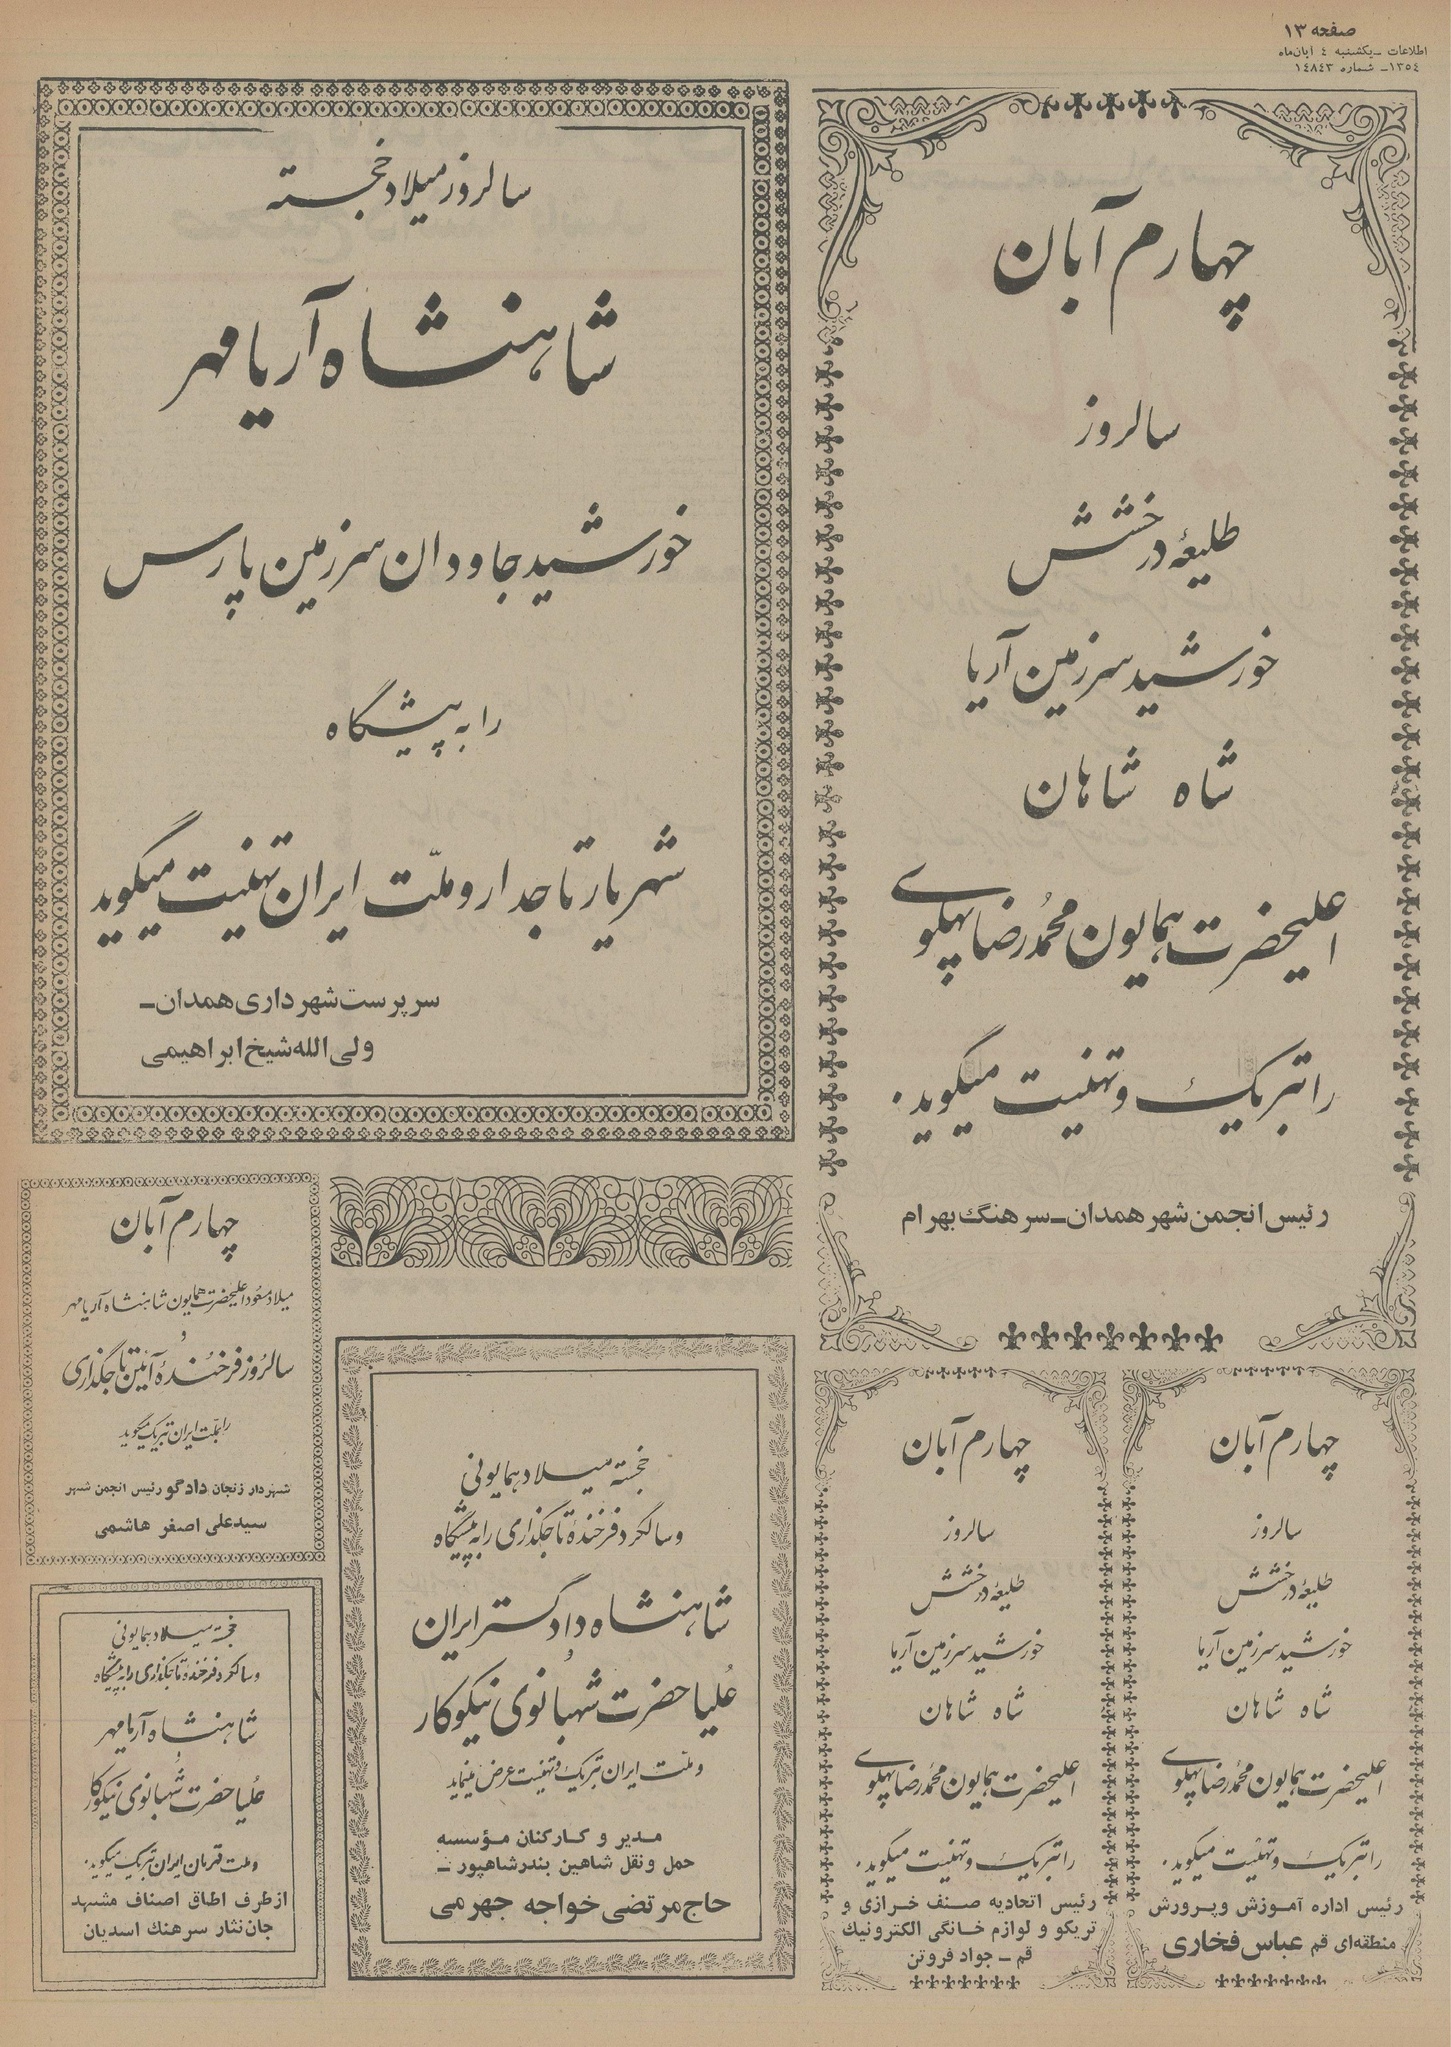 صفحه ۱۳
اطلاعات ـ یکشنبه ٤ آبان‌ماه
۱۳٥٤ـ شماره ۱٤٨٤۳
چهارم آبان
سالروز
طلیعهٔ درخشش
خورشید سرزمین آریا
شاه شاهان
اعلیحضرت همایون محمدرضا پهلوی
را تبریک و تهنیت میگوید.
رئیس انجمن شهر همدان ـ سرهنگ بهرام
سالروز میلاد خجسته
شاهنشاه آریامهر
خورشید جاودان سرزمین پارس
را به پیشگاه
شهریار تاجدار و ملّت ایران تهنیت میگوید
سرپرست شهرداری همدان ـ
ولی الله شیخ ابراهیمی
چهارم آبان
سالروز
طلیعهٔ درخشش
خورشید سرزمین آریا
شاه شاهان
اعلیحضرت همایون محمدرضا پهلوی
را تبریک و تهنیت میگوید.
رئیس اداره آموزش و پرورش
منطقه‌ای قم عباس فخاری
چهارم آبان
سالروز
طلیعهٔ درخشش
خورشید سرزمین آریا
شاه شاهان
اعلیحضرت همایون محمدرضا پهلوی
را تبریک و تهنیت میگوید.
رئیس اتحادیه صنف خرازی و
تریکو و لوازم خانگی الکترونیک
قم ـ جواد فروتن
خجسته میلاد همایونی
و سالگرد فرخندهٔ تاجگذاری را به پیشگاه
شاهنشاه دادگستر ایران
عُلیاحضرت شهبانوی نیکوکار
و ملت ایران تبریک و تهنیت عرض مینماید
مدیر و کارکنان مؤسسه
حمل و نقل شاهین بندر شاهپور ـ
حاج مرتضی خواجه جهرمی
چهارم آبان
میلاد مسعود اعلیحضرت همایون شاهنشاه آریامهر
سالروز فرخندهٔ آئین تاجگذاری
را بملّت ایران تبریک میگوید
شهردار زنجان دادگو رئیس انجمن شهر
سیدعلی اصغر هاشمی
خجسته میلاد همایونی
و سالگرد فرخندهٔ تاجگذاری را به پیشگاه
شاهنشاه آریامهر
عُلیاحضرت شهبانوی نیکوکار
و ملت قهرمان ایران تبریک میگوید.
از طرف اطاق اصناف مشهد
جان نثار سرهنگ اسدیان